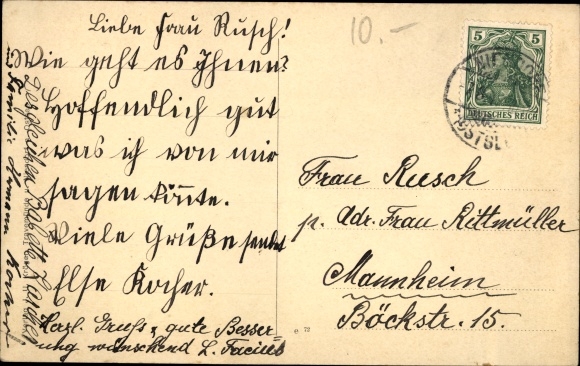 Liebe Frau Rusch!
Wie geht es Ihnen?
Hoffendlich gut
was ich von mir
sagen könnte.
Viele Grüße sendet
Else Kocher.
Herzl. Gruss u. gute Besser=
ung wünschend L. Facius
Desgleichen Babette
Familie Hermann
10.-
5 5
DEUTSCHES REICH
Frau Rusch
p. Adr. Frau Rittmüller
Mannheim
Böckstr. 15.